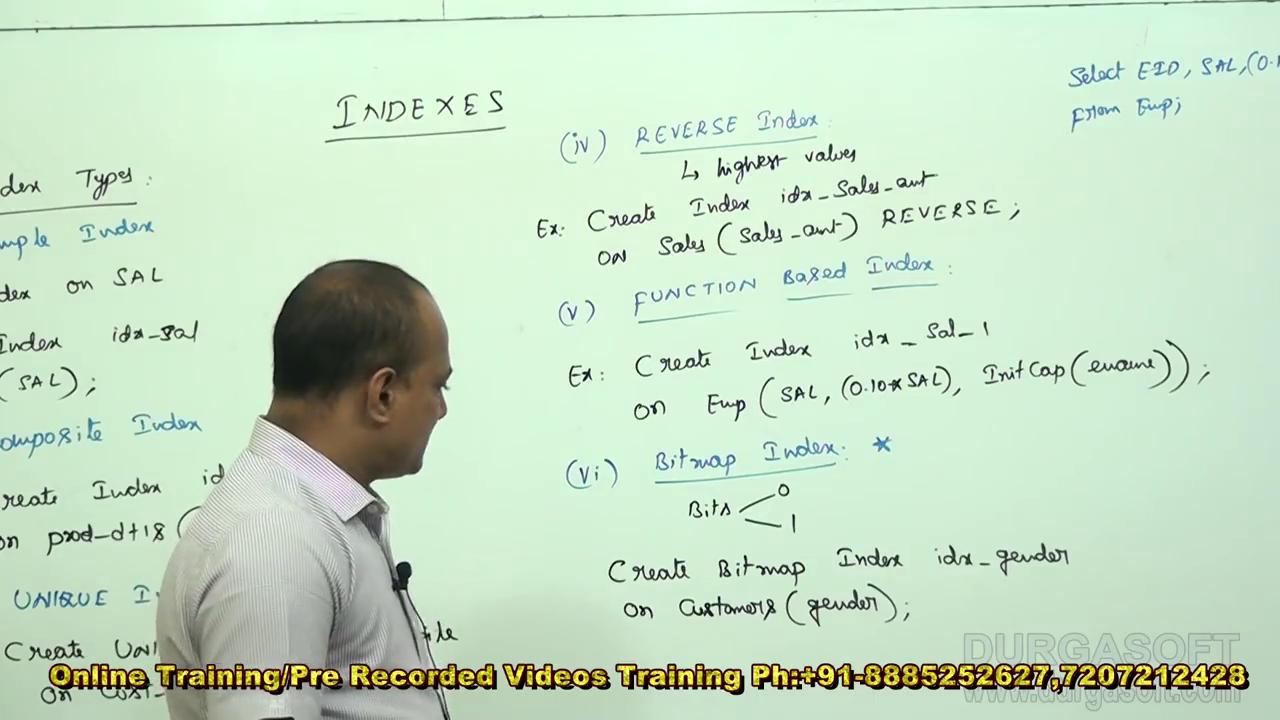 INDEXES
ndex Types:
mple Index
ndex on SAL
Index idx-sal
(SAL);
omposite Index
reate Index id
on prod-dtls (
UNIQUE I
Create UNI
on Cust-
(iv) REVERSE Index:
↳ highest values
Ex: Create Index idx-Sales-amt
ON Sales (Sales-amt) REVERSE;
(v) FUNCTION Based Index:
Ex: Create Index idx-Sal-1
on Emp (SAL, (0.10*SAL), InitCap(ename));
(vi) Bitmap Index: *
Bits 0
1
Create Bitmap Index idx-gender
on Customers (gender);
Select EID, SAL, (0.1
From Emp;
DURGASOFT
www.durgasoft.com
Online Training/Pre Recorded Videos Training Ph:+91-8885252627,7207212428